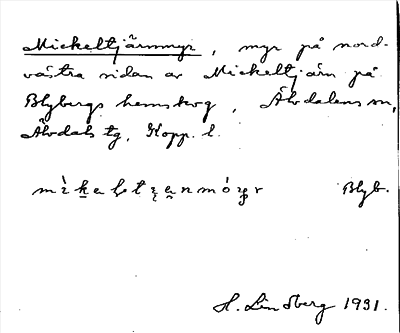 Mickeltjärnmyr, myr på nord-
västra sidan av Mickeltjärn på
Blybergs hemskog, Älvdalens sn,
Älvdals tg, Kopp. l.
Blyb.
H. Lindberg 1931.